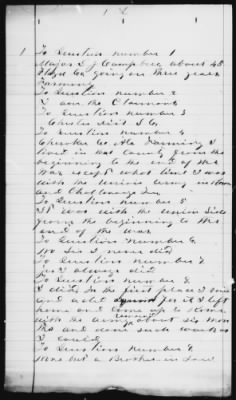 To Question number 1
Major S J Campbell about 48
Floyd Co going on three years
Farming
To Question number 2
I am the Claimant
To Question number 3
Chester Dist S C
To Question number 4
Cherokee Co Ala Farming I
lived in that County from the
beginning to the end of the
War except what time I was
with the Union army in Rome
and Chattanooga Tenn
To Question number 5
It was with the Union Side
from the beginning to the
end of the war
To Question number 6
No Sir I never did
To Question number 7
Yes I always did
To Question number 8
I did In the first place I
and for it I left
home and come up to Rome
with the army remained about six months
and done such work as
I could
To Question number 9
was but a Brother in Law